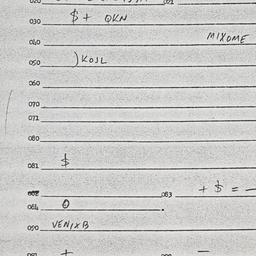 030 $ + QKN
040 MIXOME
050 ) KOJL
060
070
071
080
081 $
083 + $ = -
084 0 .
090 VENIXB
091 +